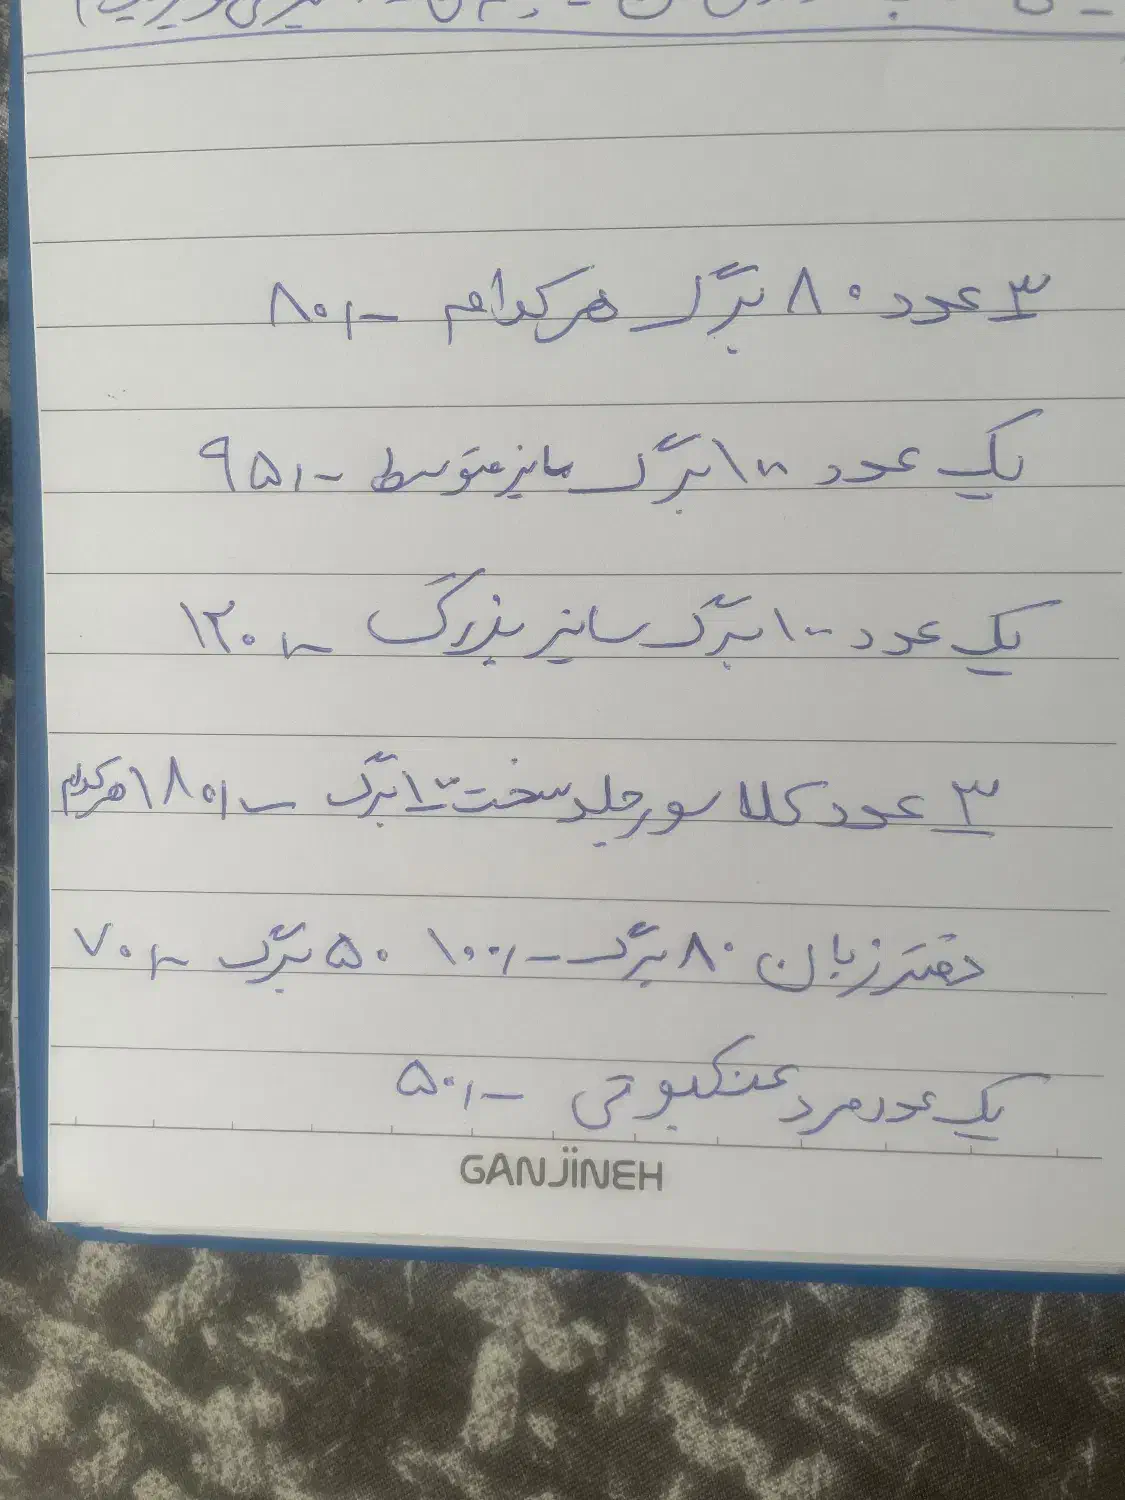 ۳ عدد ۸۰ برگ هر کدام ۸۰/-
یک عدد ۱۰۰ برگ سایز متوسط ۹۵/-
یک عدد ۱۰۰ برگ سایز بزرگ ۱۲۰/-
۳ عدد کلاسور جلد سخت ۱۰۰ برگ ۱۸۰/- هر کدام
دفتر زبان ۸۰ برگ ۱۰۰/- ۵۰ برگ ۷۰/-
یک عدد مرد عنکبوتی ۵۰/-
GANJINEH